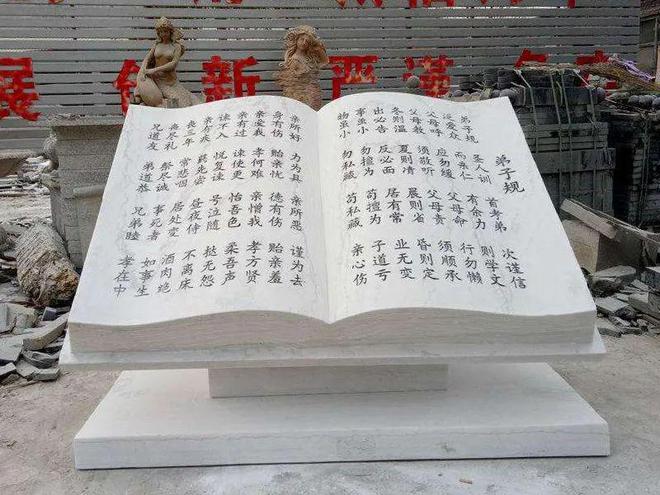 展 创新 严谨
弟子规
弟子规 圣人训 首孝弟 次谨信
泛爱众 而亲仁 有余力 则学文
父母呼 应勿缓 父母命 行勿懒
父母教 须敬听 父母责 须顺承
冬则温 夏则清 晨则省 昏则定
出必告 反必面 居有常 业无变
事虽小 勿擅为 苟擅为 子道亏
物虽小 勿私藏 苟私藏 亲心伤
亲所好 力为具 亲所恶 谨为去
身有伤 贻亲忧 德有伤 贻亲羞
亲爱我 孝何难 亲憎我 孝方贤
亲有过 谏使更 怡吾色 柔吾声
谏不入 悦复谏 号泣随 挞无怨
亲有疾 药先尝 昼夜侍 不离床
丧三年 常悲咽 居处变 酒肉绝
丧尽礼 祭尽诚 事死者 如事生
兄道友 弟道恭 兄弟睦 孝在中